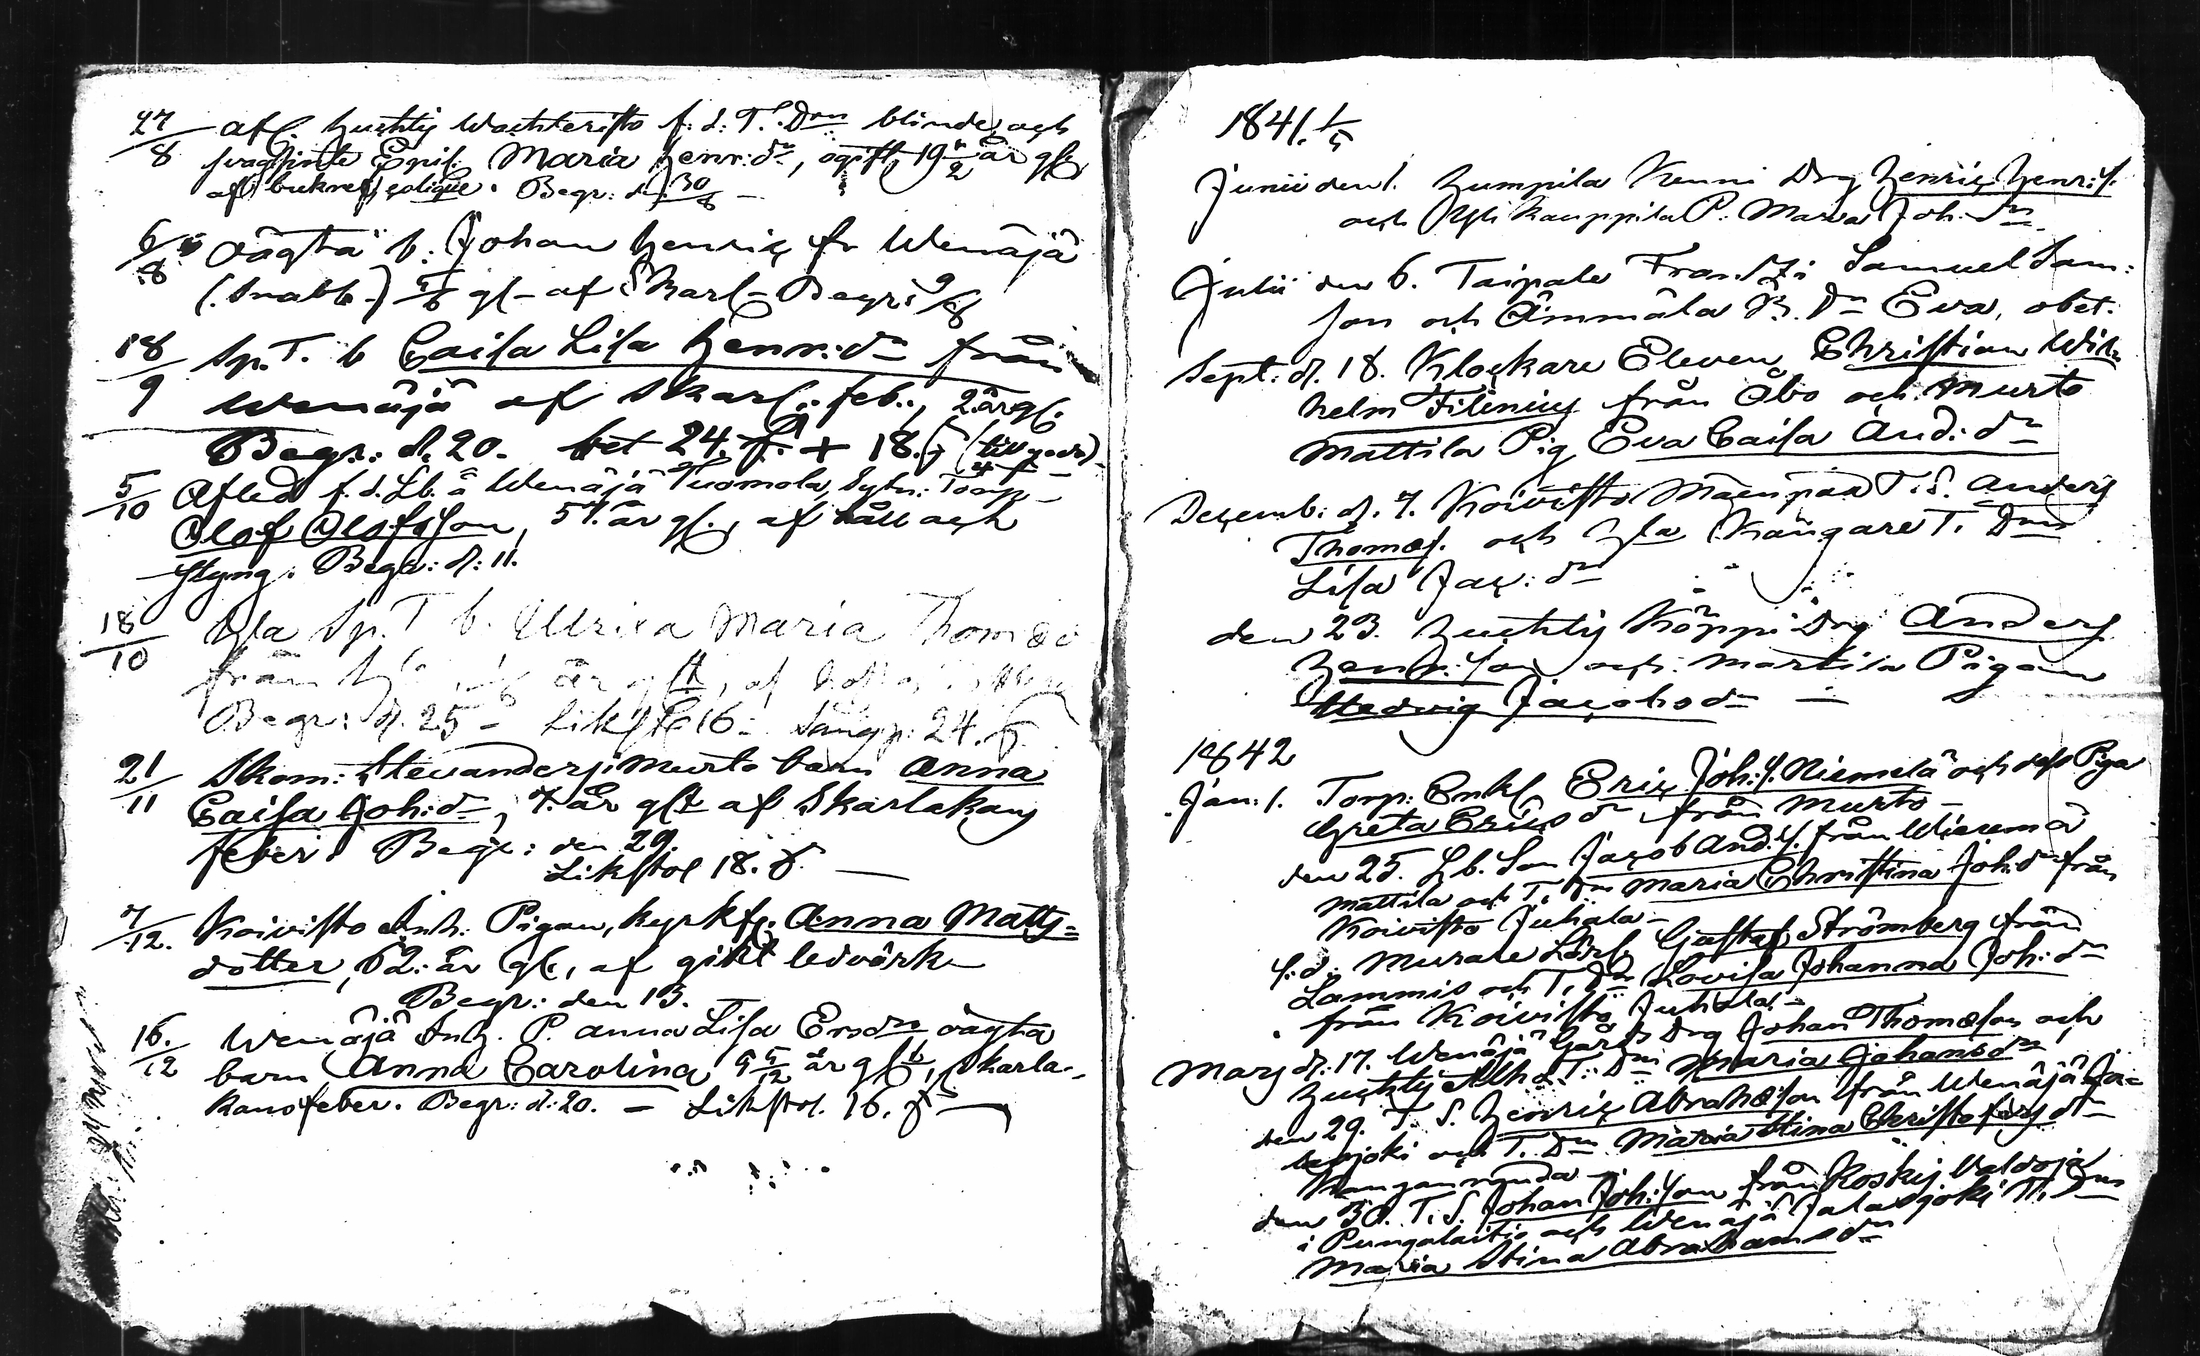 27/8 afl. Huhtis Wachteristo f. d. T. Dn blinde och
Enif. Maria Henr:dr, ogift, 19 1/2 år gl.
af bukref, colique. Begr: d. 30/8 –
6/8 Oägta b. Johan Henric fr Wenäjä
(Snabb.) gl – af Skarl – Begr: 9/8
18/9 Sp. T. b Caisa Lisa Henr:dr från
Wenäjä af Skarl. feb., 2 år gl.
Begr: d. 20. bet 24. + 18.
5/10 Afled f. d. Lb. å Wenäjä Tuomola, Sytn: Torp
Olof Olofsson, 57. år gl., af håll och
styng. Begr: d: 11.
18/10 Yla Sp. T b. Ulrica Maria Thom
från år glt, af
Begr: d. 25 – Likst 16 – 24.
21/11 Skom: Stevanders i Murto barn Anna
Caisa Joh:dr, 7. år glt af Skarlakans
feber. Begr: den 29.
Likstol 18. –
7/12. Koivisto Inh. Pigan, kyrkfg. Anna Matts=
dotter, 62. år gl., af gikt ledvärk
Begr: den 13.
16./12 Wenäjä Inh. P. Anna Lisa Ersdr oägta
barn Anna Carolina 9 5/12 år glt, skarla-
kansfeber. Begr: d: 20. – Likstol. 16.
1841.
Junii den 1. Humpila Kenni Drg Henric Henr:s.
och Yli Kauppila P. Maria Joh:dr.
Julii den 6. Taipale Franssi Samuel Sam:
son och Ämmälä B. Dr Eva, obet.
Sept: d. 18. Klockare Eleven Christian Wil-
helm Filenius från Åbo och Murto
Mattila Pig Eva Caisa And:dr
Decemb: d. 7. Koivisto Mäenpää T. S. Anders
Thomæs. och Yla Kangare T. Dn
Lisa Jac:dr
den 23. Huhtis Köppi Drg Anders
Henr:son och Martila Pigan
Hedvig Jacobsdr –
1842
Jan: 1. Torp: Enkl. Eric Joh:s. Niemelä och dess Piga
Greta Ericsdr från Murto –
den 25. Lb. Son Jacob And:s. från Wieremä
Mattila och T. Dn Maria Christina Joh:dr från
Koivisto Juhala –
s: d. Murare Lärl. Gustaf Strömberg från
Lammis och T. Dn Lovisa Johanna Joh:dr
från Koivisto Juhala –
Mars d. 17. Wenäjä Gårds Drg Johan Thomæson och
Huhtis Alho T: Dn Maria Johansdr
den 29. T. S. Henric Abrahæson från Wenäjä Ja-
lasjoki och T. Dn Maria Stina Christofersdr
Kangan
den 30. T. S. Johan Joh:son från Koskis Waldoja
i Pungalaitio och Wenäjä Jalasjoki T. Dn
Maria Stina Abrahamsdr